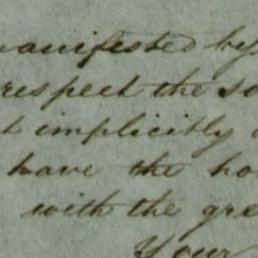 manifested by
respect the so
t implicitly
have the ho
with the gre
Your